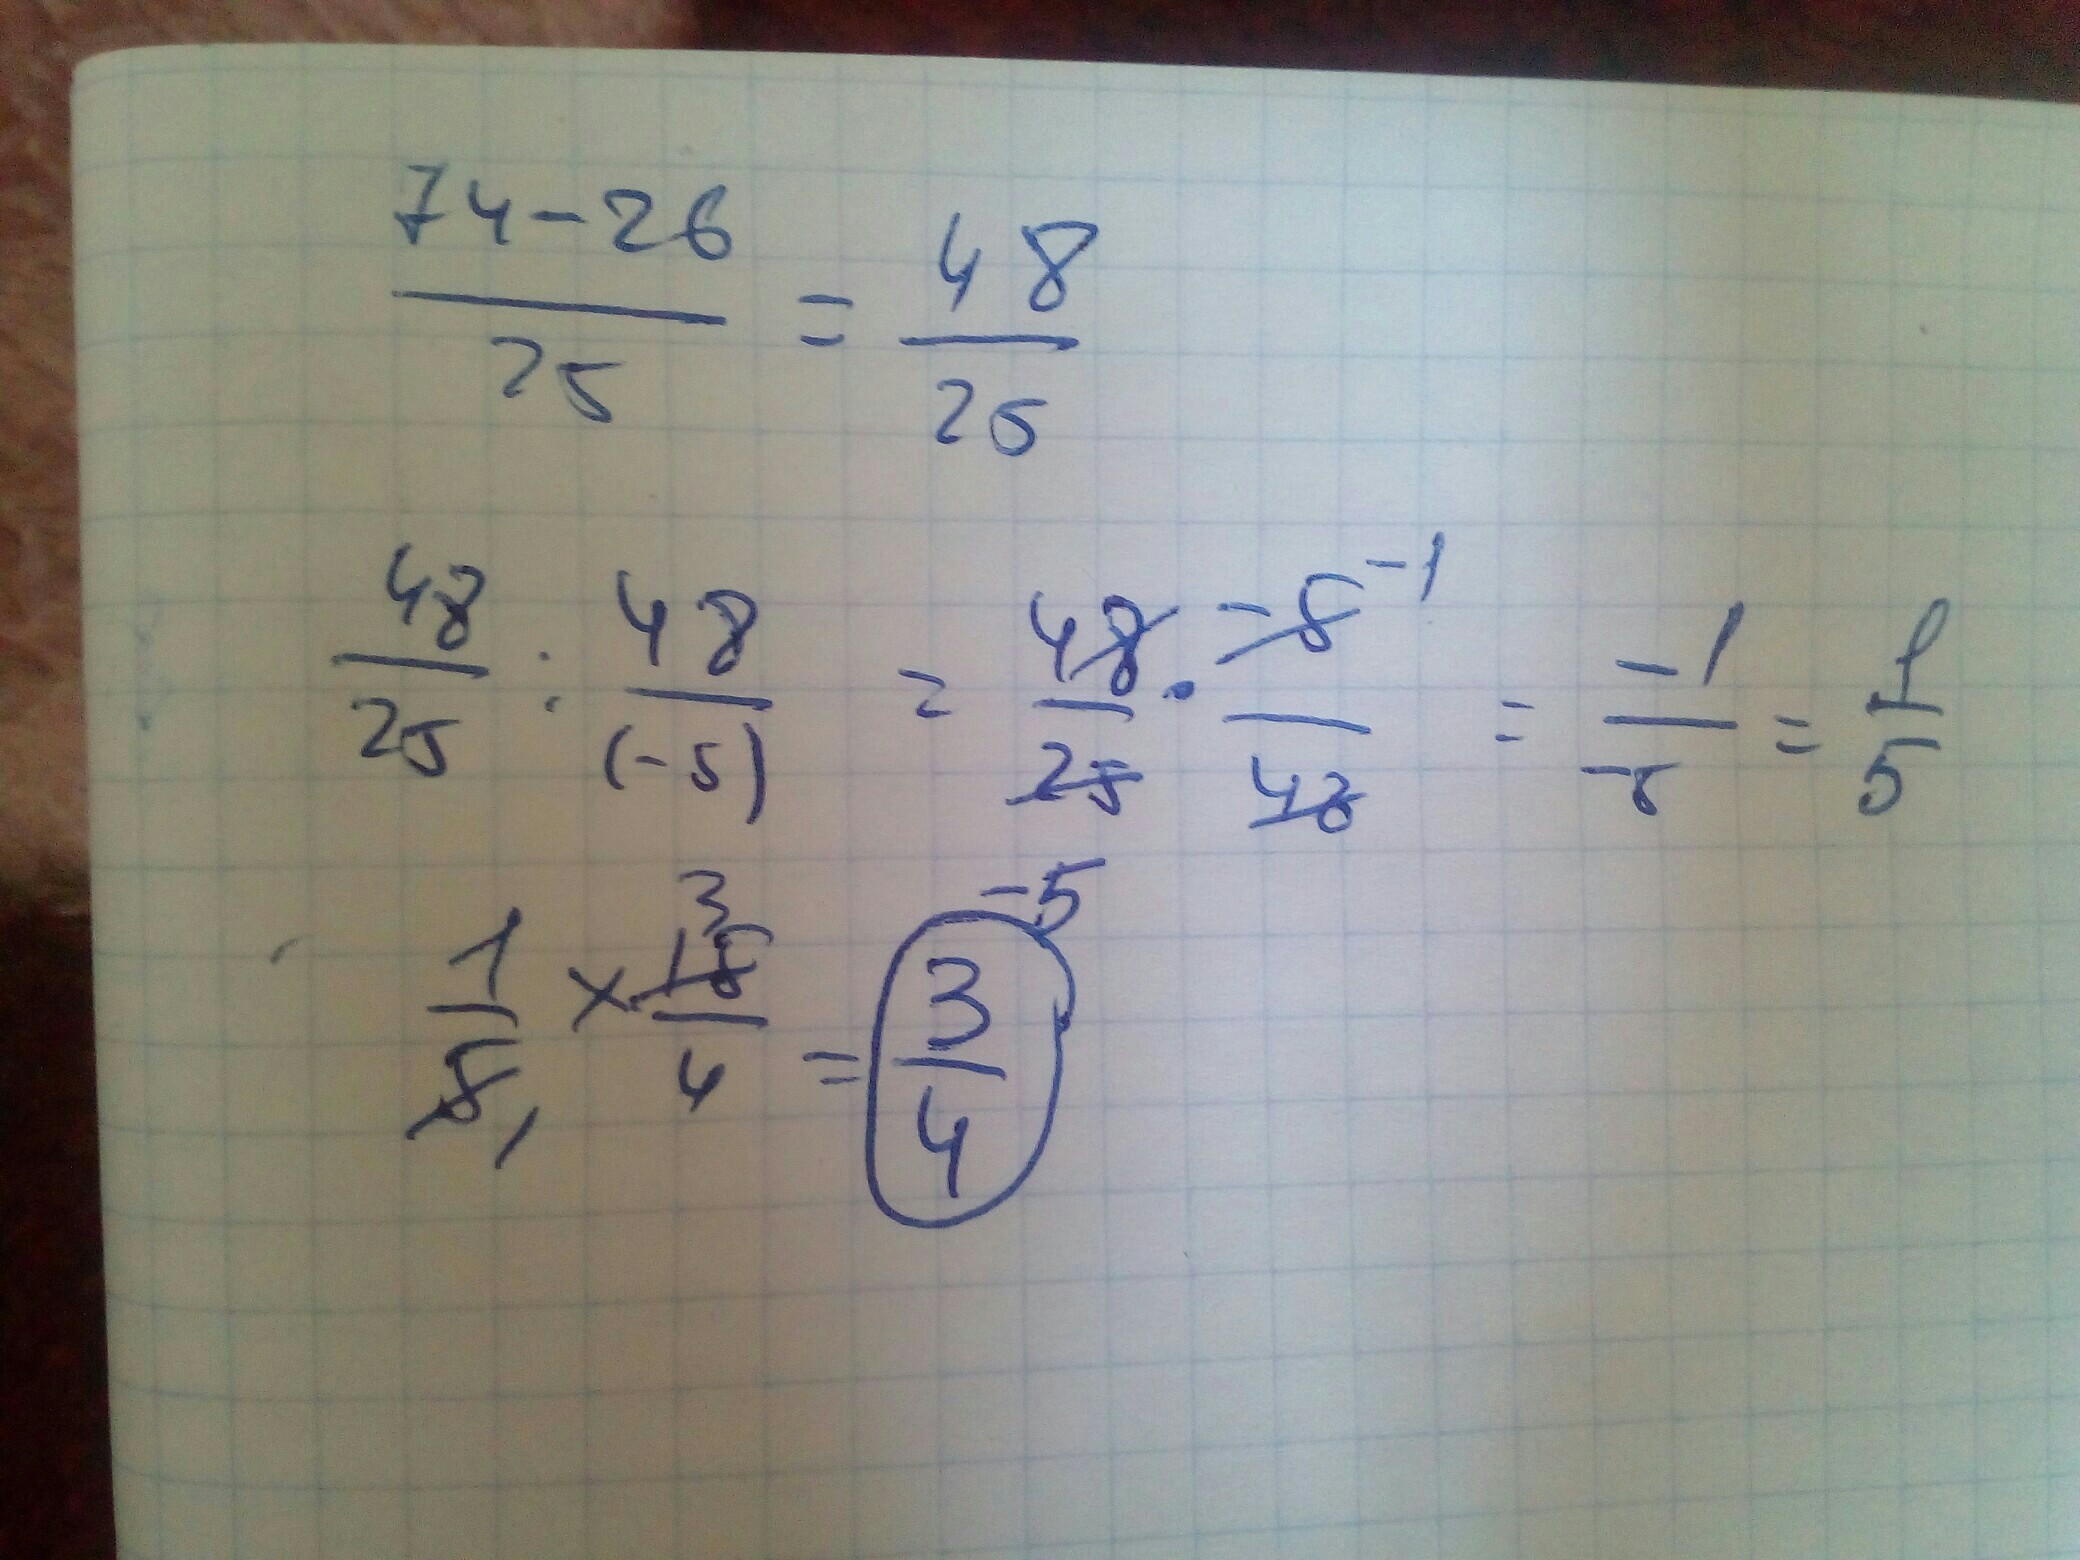 74-26/25 = 48/25
48/25 : 48/(-5) = 48/25 · -5/48 -1 = -1/-5 = 1/5
-5
1/5 1 × 15 3/4 = 3/4